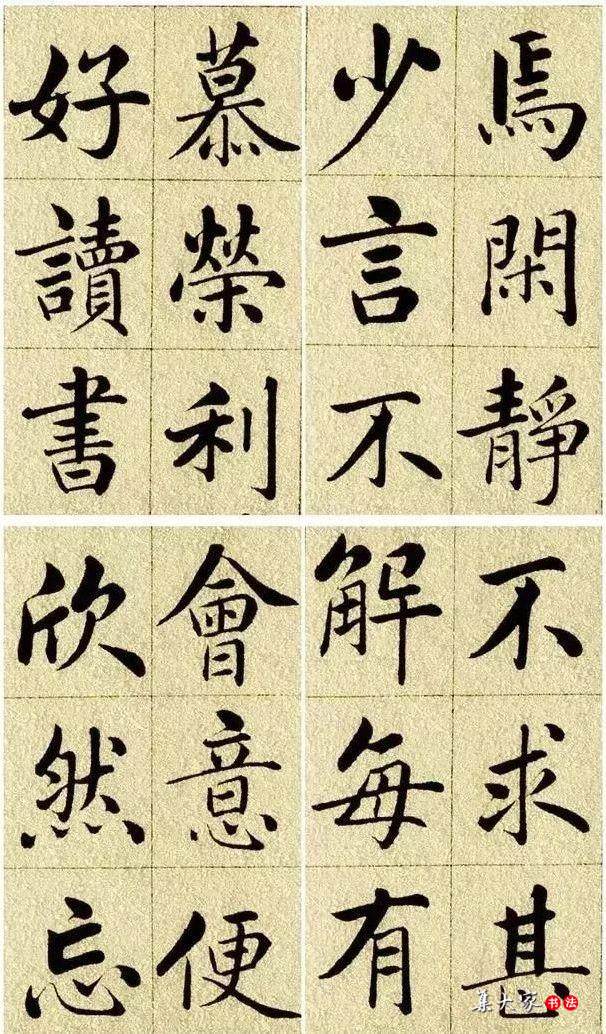 焉閑靜
少言不
慕榮利
好讀書
不求甚
解每有
會意便
欣然忘
集大家书法